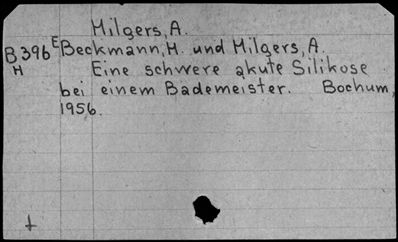 Hilgers, A.
B 396 E Beckmann, H. und Hilgers, A.
H Eine schwere akute Silikose
bei einem Bademeister. Bochum,
1956.